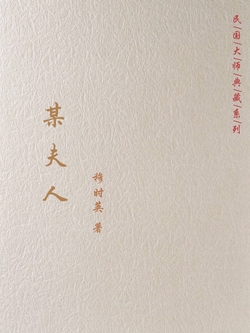 民/国/大/师/典/藏/系/列
某夫人
穆时英 著